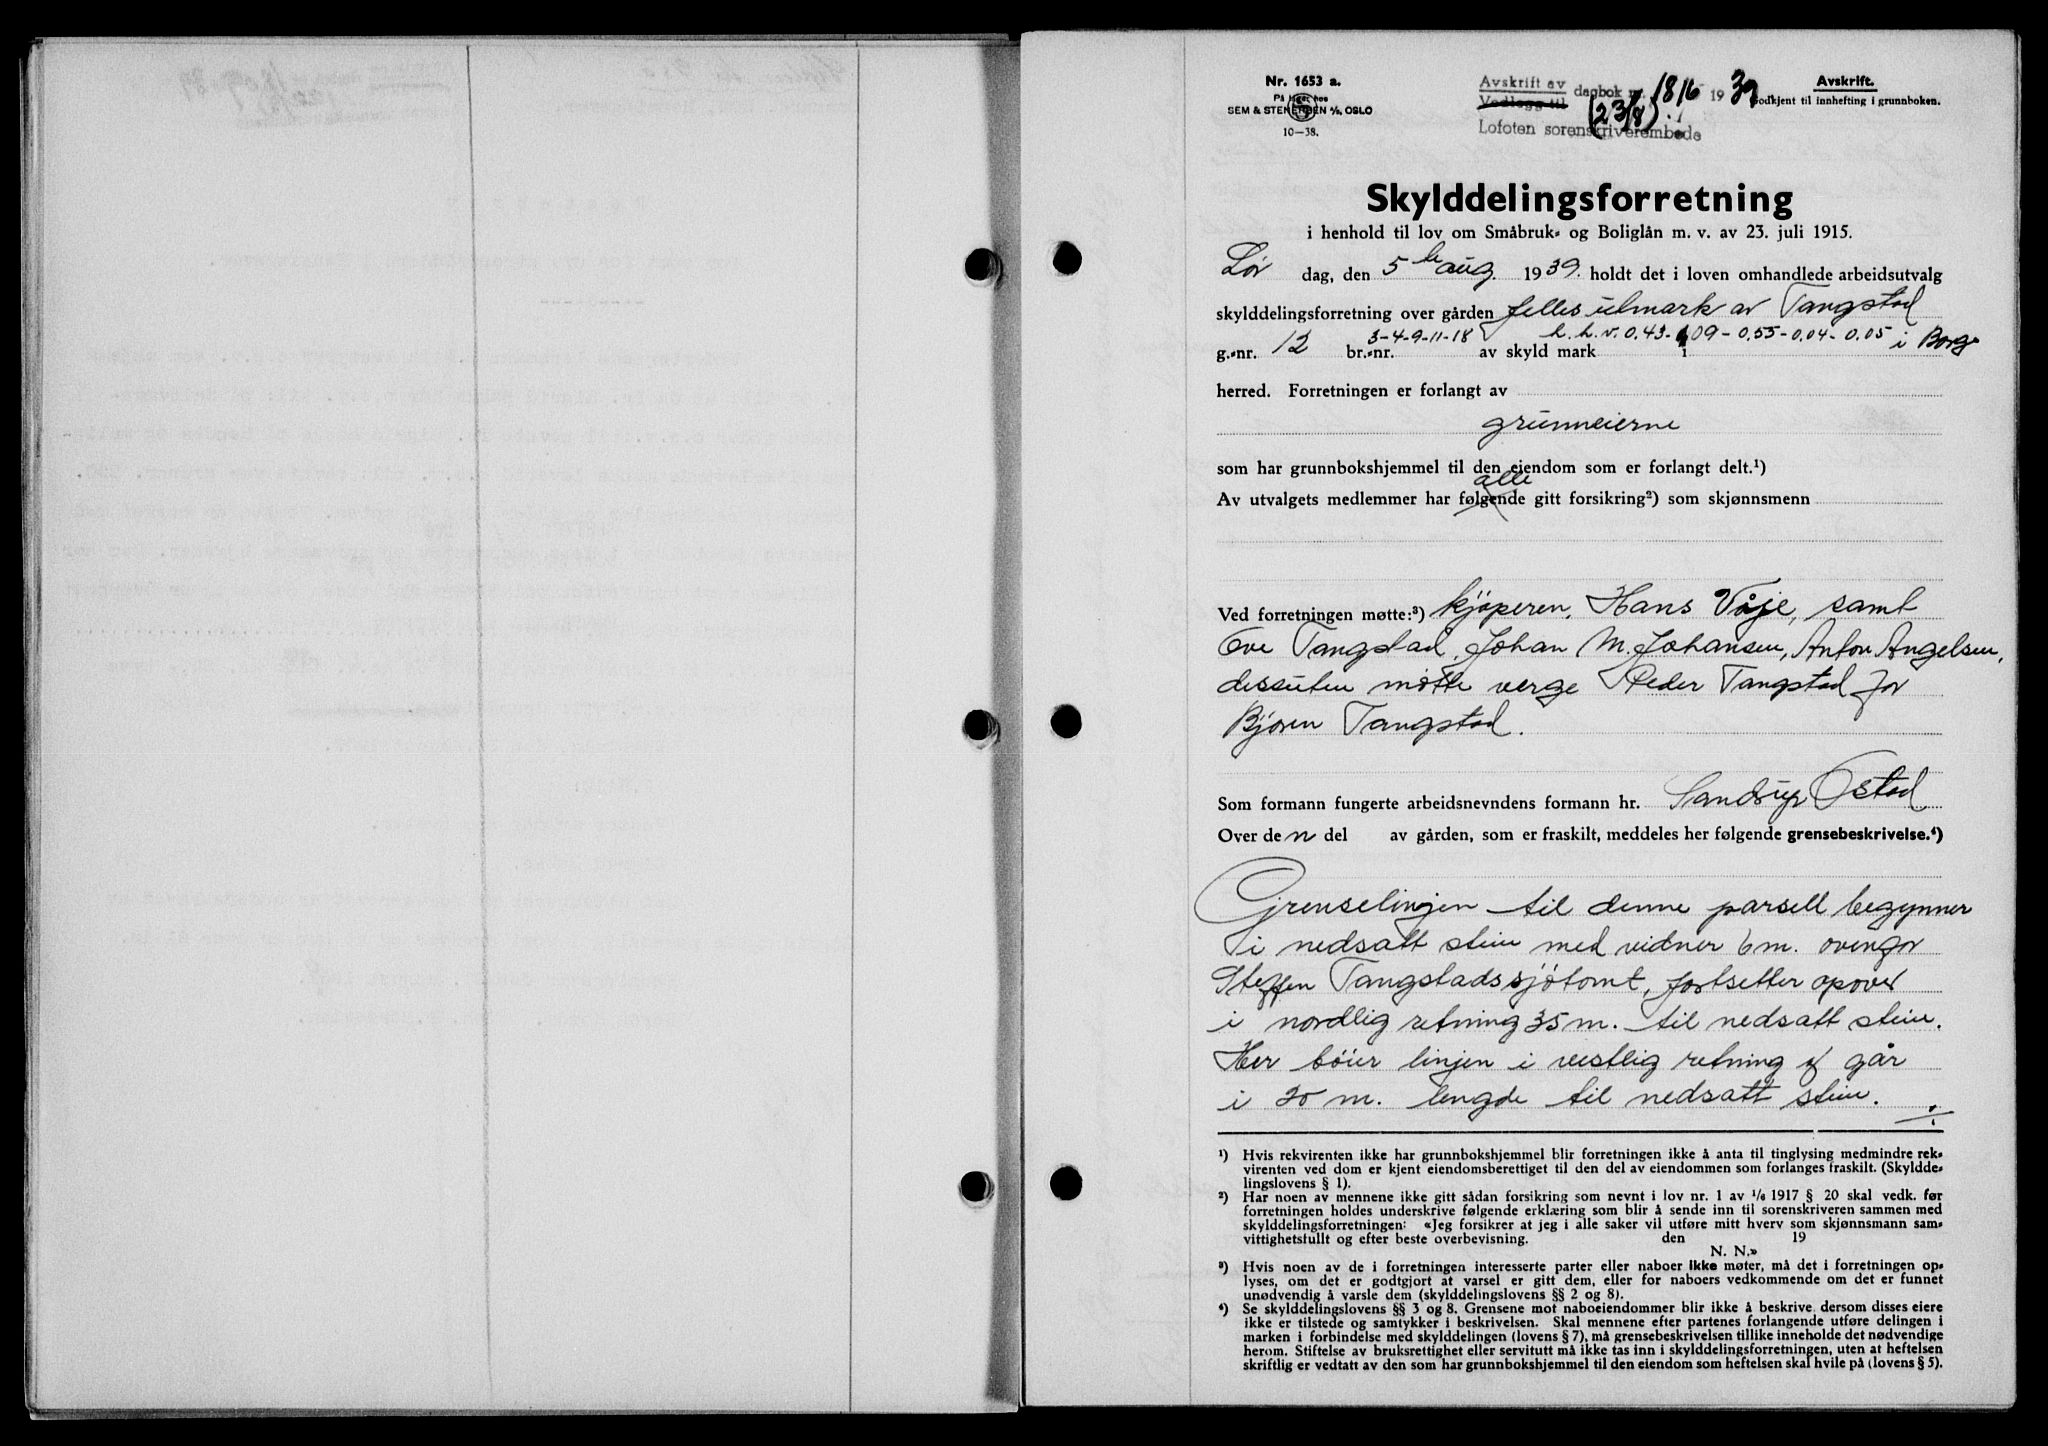 Nr. 1653 a.
På lager hos
SEM & STENERSEN A/S, OSLO
10—38.
Avskrift av
Vedlegg til dagbok nr. 1816 1939
(23/8)
Lofoten sorenskriverembede
Avskrift.
Godkjent til innhefting i grunnboken.
Skylddelingsforretning
i henhold til lov om Småbruk- og Boliglån m. v. av 23. juli 1915.
Lør dag, den 5 aug. 1939. holdt det i loven omhandlede arbeidsutvalg
skylddelingsforretning over gården felles utmark av Tangstad
g.-nr. 12 br.-nr. 3-4-9-11-18 av skyld mark h.h.v. 0.43-1.09-0.55-0.04-0.05 i Borge
herred. Forretningen er forlangt av
grunneierne
som har grunnbokshjemmel til den eiendom som er forlangt delt.¹)
alle
Av utvalgets medlemmer har følgende gitt forsikring²) som skjønnsmenn
Ved forretningen møtte:³) kjøperen, Hans Våje, samt
Ove Tangstad, Johan M. Johansen, Anton Angelsen,
dessuten møtte verge Peder Tangstad for
Bjøren Tangstad.
Som formann fungerte arbeidsnevndens formann hr. Sandrup Østad
Over den del av gården, som er fraskilt, meddeles her følgende grensebeskrivelse.⁴)
Grenselinjen til denne parsell begynner
i nedsatt stein med vidner 6 m. ovenfor
Steffen Tangstads sjøtomt, fortsetter opover
i nordlig retning 35 m. til nedsatt stein.
Her bøier linjen i vestlig retning og går
i 20 m. lengde til nedsatt stein. ./.
¹) Hvis rekvirenten ikke har grunnbokshjemmel blir forretningen ikke å anta til tinglysing medmindre rek-
virenten ved dom er kjent eiendomsberettiget til den del av eiendommen som forlanges fraskilt. (Skyldde-
lingslovens § 1).
²) Har noen av mennene ikke gitt sådan forsikring som nevnt i lov nr. 1 av 1/6 1917 § 20 skal vedk. før
forretningen holdes underskrive følgende erklæring som blir å sende inn til sorenskriveren sammen med
skylddelingsforretningen: «Jeg forsikrer at jeg i alle saker vil utføre mitt hverv som skjønnsmann sam-
vittighetsfullt og efter beste overbevisning. den 19
N. N.»
³) Hvis noen av de i forretningen interesserte parter eller naboer ikke møter, må det i forretningen op-
lyses, om det er godtgjort at varsel er gitt dem, eller for naboers vedkommende om det er funnet
unødvendig å varsle dem (skylddelingslovens §§ 2 og 8).
⁴) Se skylddelingslovens §§ 3 og 8. Grensene mot naboeiendommer blir ikke å beskrive, dersom disses eiere
ikke er tilstede og samtykker i beskrivelsen. Skal mennene efter partenes forlangende utføre delingen i
marken i forbindelse med skylddelingen (lovens § 7), må grensebeskrivelsen tillike inneholde det nødvendige
herom. Stiftelse av bruksrettighet eller servitutt må ikke tas inn i skylddelingsforretningen, uten at heftelsen
skriftlig er vedtatt av den som har grunnbokshjemmel til den eiendom som heftelsen skal hvile på (lovens § 5).